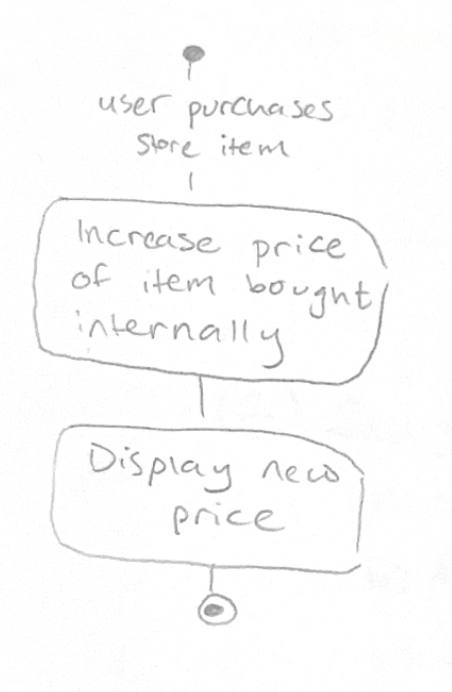 user purchases
store item
Increase price
of item bought
internally
Display new
price